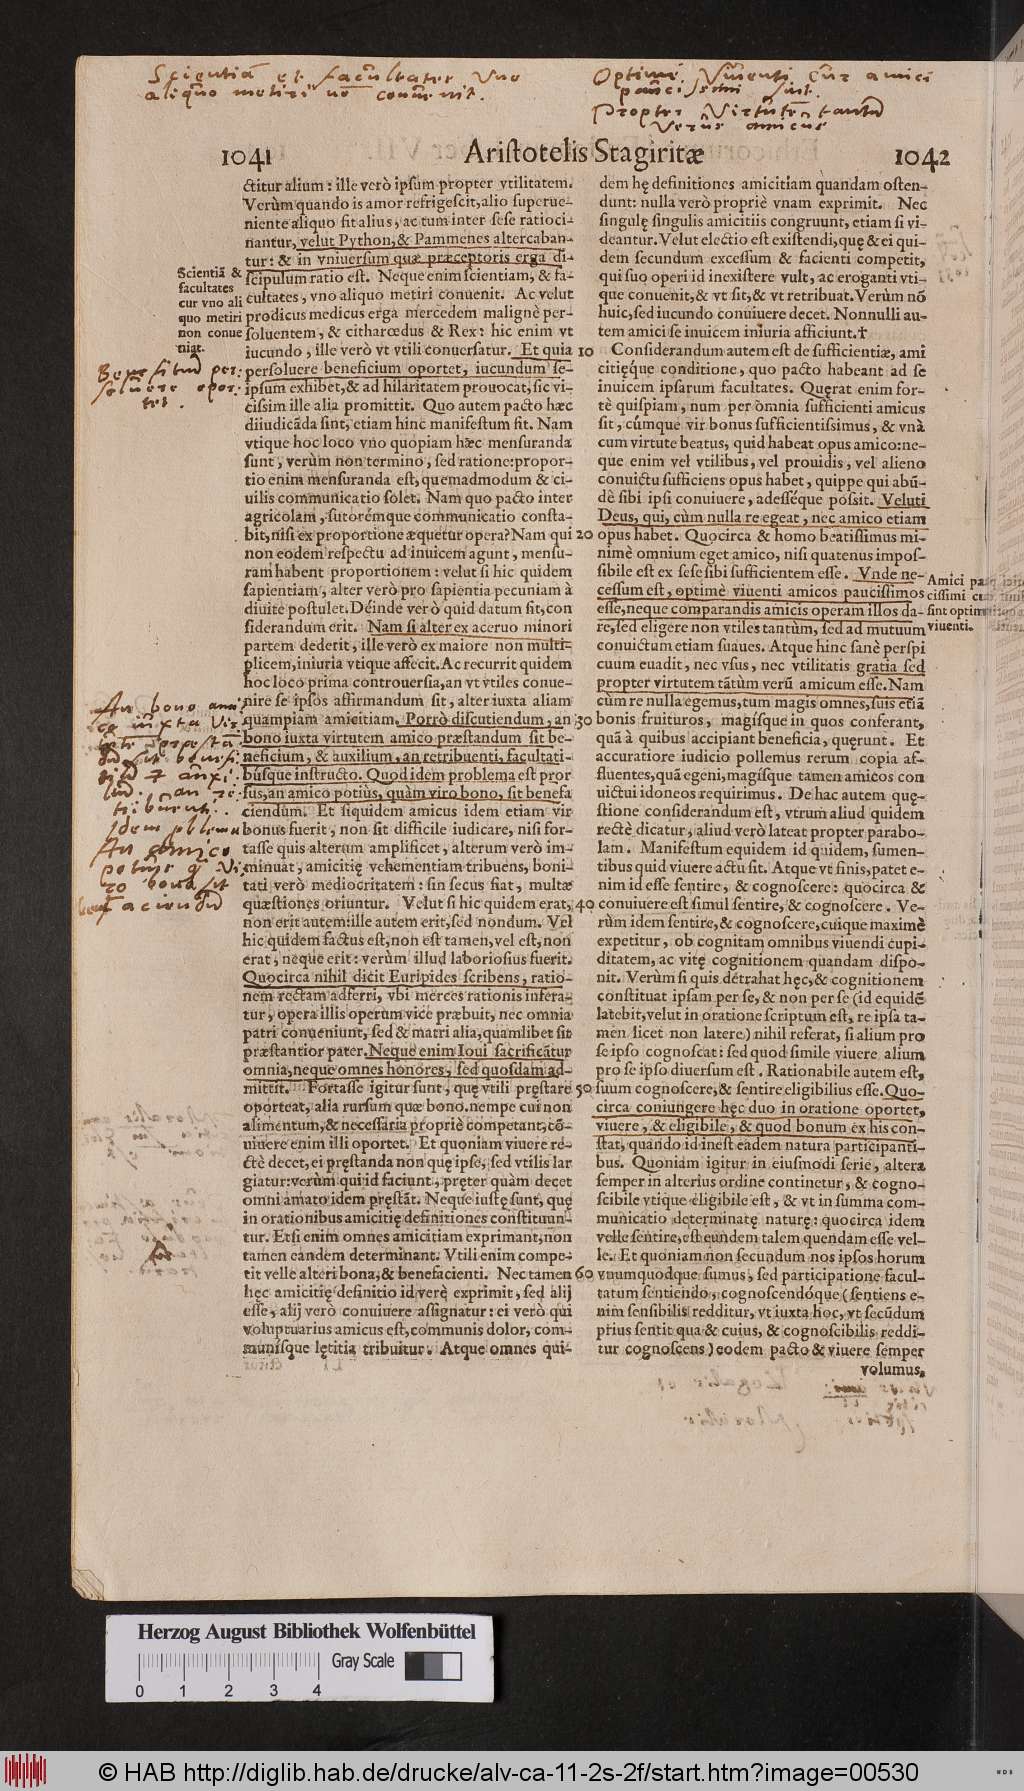 Scientiā et facultates uno
aliquo metiri nō convenit.
Optimè Viventi cur amici
paucissimi sint.
Propter Virtutē tantū
Verus amicus
1041 Aristotelis Stagiritæ 1042
ctitur alium: ille verò ipsum propter vtilitatem.
Verùm quando is amor refrigescit, alio superue-
niente aliquo fit alius, ac tum inter sese ratioci-
nantur, velut Python, & Pammenes altercaban-
tur: & in vniuersum quæ præceptoris erga di-
scipulum ratio est. Neque enim scientiam, & fa-
cultates, vno aliquo metiri conuenit. Ac velut
prodicus medicus erga mercedem malignè per-
soluentem, & citharœdus & Rex: hic enim vt
iucundo, ille verò vt vtili conuersatur. Et quia
persoluere beneficium oportet, iucundum se-
ipsum exhibet, & ad hilaritatem prouocat, sic vi-
cissim ille alia promittit. Quo autem pacto hæc
diiudicāda sint, etiam hinc manifestum fit. Nam
vtique hoc loco vno quopiam hæc mensuranda
sunt, verùm non termino, sed ratione: propor-
tio enim mensuranda est, quemadmodum & ci-
uilis communicatio solet. Nam quo pacto inter
agricolam, sutorémque communicatio consta-
bit, nisi ex proportione æquetur opera? Nam qui
non eodem respectu ad inuicem agunt, mensu-
ram habent proportionem: velut si hic quidem
sapientiam, alter verò pro sapientia pecuniam à
diuite postulet. Deinde verò quid datum sit, con
siderandum erit. Nam si alter ex aceruo minori
partem dederit, ille verò ex maiore non multi-
plicem, iniuria vtique affecit. Ac recurrit quidem
hoc loco prima controuersia, an vt vtiles conue-
nire se ipsos affirmandum sit, alter iuxta aliam
quampiam amicitiam. Porrò discutiendum, an
bono iuxta virtutem amico præstandum sit be-
neficium, & auxilium, an retribuenti, facultati-
búsque instructo. Quod idem problema est pror
sus, an amico potiùs, quàm viro bono, sit benefa
ciendum. Et siquidem amicus idem etiam vir
bonus fuerit, non sit difficile iudicare, nisi for-
tasse quis alterum amplificet, alterum verò im-
minuat, amicitię vehementiam tribuens, boni-
tati verò mediocritatem: sin secus fiat, multæ
quæstiones oriuntur. Velut si hic quidem erat,
non erit autem: ille autem erit, sed nondum. Vel
hic quidem factus est, non est tamen, vel est, non
erat, neque erit: verùm illud laboriosius fuerit.
Quocirca nihil dicit Euripides scribens, ratio-
nem rectam adferri, vbi merces rationis infera-
tur, opera illis operum vice præbuit, nec omnia
patri conueniunt, sed & matri alia, quamlibet sit
præstantior pater. Neque enim Ioui sacrificātur
omnia, neque omnes honores, sed quosdam ad-
mittit. Fortasse igitur sunt, quę vtili pręstare
oporteat, alia rursum quæ bono. nempe cui non
alimentum, & necessaria propriè competant, cō-
uiuere enim illi oportet. Et quoniam viuere re-
ctè decet, ei pręstanda non quę ipse, sed vtilis lar
giatur: verùm qui id faciunt, pręter quàm decet
omni amato idem pręstāt. Neque iustę sunt, quę
in orationibus amicitię definitiones constituun-
tur. Etsi enim omnes amicitiam exprimant, non
tamen eandem determinant. Vtili enim compe-
tit velle alteri bona, & benefacienti. Nec tamen
hęc amicitię definitio id verè exprimit, sed alij
esse, alij verò conuiuere assignatur: ei verò qui
voluptuarius amicus est, communis dolor, com-
munísque lętitia tribuitur. Atque omnes qui-
Scientiā &
facultates
cur vno ali
quo metiri
non conue
niat.
Beneficium per-
solvere opor-
tet.
An bono ami-
co iuxta Vir-
tutē præstā-
dū sit benefi-
tiū & auxi-
liū. an re-
tribuenti.
Idem pblema
An amico
potius q̃ Vi-
ro bono sit
benefaciendū
10
20
30
40
50
60
dem hę definitiones amicitiam quandam osten-
dunt: nulla verò propriè vnam exprimit. Nec
singulę singulis amicitiis congruunt, etiam si vi-
deantur. Velut electio est existendi, quę & ei qui-
dem secundum excessum & facienti competit,
qui suo operi id inexistere vult, ac eroganti vti-
que conuenit, & vt sit, & vt retribuat. Verùm nō
huic, sed iucundo conuiuere decet. Nonnulli au-
tem amici se inuicem iniuria afficiunt. †
Considerandum autem est de sufficientiæ, ami
citięque conditione, quo pacto habeant ad se
inuicem ipsarum facultates. Quęrat enim for-
tè quispiam, num per omnia sufficienti amicus
sit, cùmque vir bonus sufficientissimus, & vnà
cum virtute beatus, quid habeat opus amico: ne-
que enim vel vtilibus, vel prouidis, vel alieno
conuictu sufficiens opus habet, quippe qui abū-
dè sibi ipsi conuiuere, adesséque possit. Veluti
Deus, qui, cùm nulla re egeat, nec amico etiam
opus habet. Quocirca & homo beatissimus mi-
nimè omnium eget amico, nisi quatenus impos-
sibile est ex sese sibi sufficientem esse. Vnde ne-
cessum est, optimè viuenti amicos paucissimos
esse, neque comparandis amicis operam illos da-
re, sed eligere non vtiles tantùm, sed ad mutuum
conuictum etiam suaues. Atque hinc sanè perspi
cuum euadit, nec vsus, nec vtilitatis gratia sed
propter virtutem tātùm verū amicum esse. Nam
cùm re nulla egemus, tum magis omnes, suis etiā
bonis fruituros, magísque in quos conferant,
quā à quibus accipiant beneficia, quęrunt. Et
accuratiore iudicio pollemus rerum copia af-
fluentes, quā egeni, magísque tamen amicos con
uictui idoneos requirimus. De hac autem quę-
stione considerandum est, vtrum aliud quidem
rectè dicatur, aliud verò lateat propter parabo-
lam. Manifestum equidem id quidem, sumen-
tibus quid viuere actu sit. Atque vt finis, patet e-
nim id esse sentire, & cognoscere: quocirca &
conuiuere est simul sentire, & cognoscere. Ve-
rùm idem sentire, & cognoscere, cuíque maximè
expetitur, ob cognitam omnibus viuendi cupi-
ditatem, ac vitę cognitionem quandam dispo-
nit. Verùm si quis detrahat hęc, & cognitionem
constituat ipsam per se, & non per se (id equidē
latebit, velut in oratione scriptum est, re ipsa ta-
men licet non latere) nihil referat, si alium pro
se ipso cognoscat: sed quod simile viuere alium
pro se ipso diuersum est. Rationabile autem est,
suum cognoscere, & sentire eligibilius esse. Quo-
circa coniungere hęc duo in oratione oportet,
viuere, & eligibile, & quod bonum ex his con-
stat, quando id inest eadem natura participanti-
bus. Quoniam igitur in eiusmodi serie, altera
semper in alterius ordine continetur, & cogno-
scibile vtique eligibile est, & vt in summa com-
municatio determinatę naturę: quocirca idem
velle sentire, est eundem talem quendam esse vel-
le. Et quoniam non secundum nos ipsos horum
vnumquodque sumus, sed participatione facul-
tatum sentiendo, cognoscendóque (sentiens e-
nim sensibilis redditur, vt iuxta hoc, vt secūdum
prius sentit qua & cuius, & cognoscibilis reddi-
tur cognoscens) eodem pacto & viuere semper
volumus,
Amici pa
cissimi cu
sint optim
viuenti.
Herzog August Bibliothek Wolfenbüttel
Gray Scale
0 1 2 3 4
© HAB http://diglib.hab.de/drucke/alv-ca-11-2s-2f/start.htm?image=00530